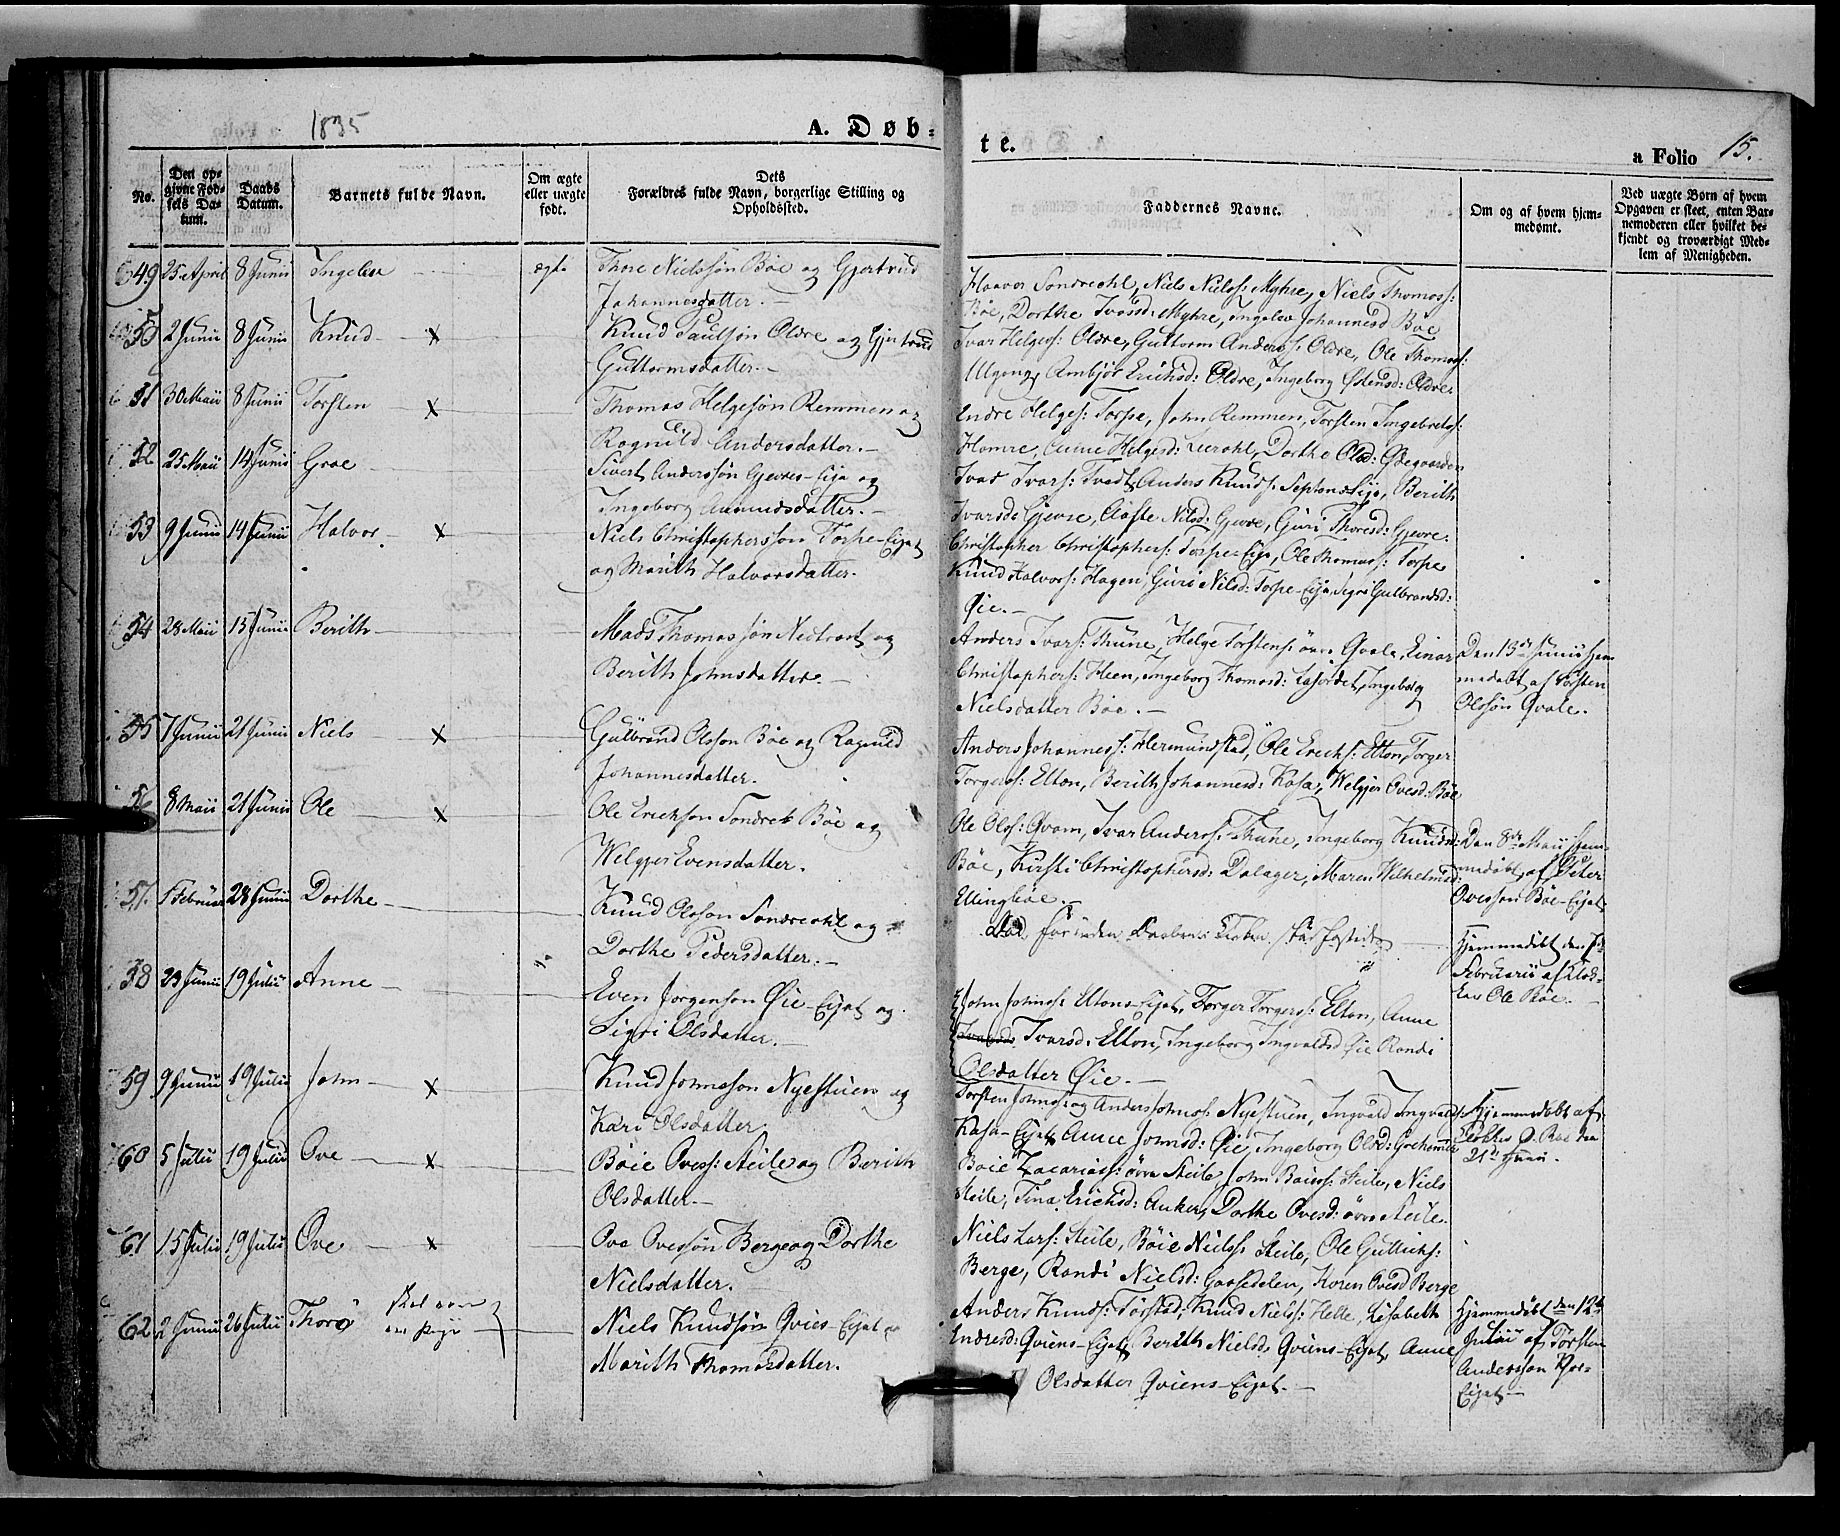 1835
A. Døb-
te.
a Folio 15.
No.
Den op-
givne Fød-
sels Da-
tum.
Daabs
Datum.
Barnets fulde Navn.
Om ægte
eller uægte
født.
Dets
Forældres fulde Navn, borgerlige Stilling og
Opholdssted.
Faddernes Navne.
Om og af hvem hjem-
medømt.
Ved uægte Børn af hvem
Opgaven er skeet, enten Bar-
nemoderen eller hvilket be-
kjendt og troværdigt Med-
lem af Menigheden.
49 25 April 8 Junii Ingelev ægte Thore Nielssøn Bøe og Gjertrud
Johannesdatter.
Haavor Søndrehl, Niels Niels: Myhre, Niels Thomas:
Bøe, Dorthe Ivarsd: Myhre, Ingelev Johannesd Bøe
50 2 Junii 8 Junii Knud x Knud Paulsøn Oldre og Gjertrud
Guttormsdatter.
Ivar Helges: Oldre, Guttorm Anders: Oldre, Ole Thomas:
Ambjør Erichsd: Oldre, Ingeborg Ostensd: Oldre.
51 30 Maii 8 Junii Torsten x Thomas Helgesøn Remmen og
Ragnild Andersdatter.
Endre Helges: Torpe, John Remmen, Torsten Ingebrets:
Hamre, Anne Helgesd: Dorthe Olsd: Ødegaarden
52 25 Maii 14 Junii Groe Sivert Anderssøn Gjevres-Eje og
Ingeborg Amundsdatter.
Ivar Ivars: Tvedt, Anders Knuds: Berith
Ivarsd: Gjevre, Aaste Nilsd: Gjevre, Guri Thoresd: Gjevre.
53 9 Junii 14 Junii Halvor x Niels Christophersson Torpe-Eijet
og Marith Halvorsdatter.
Christopher Christophers: Torpe-Eije, Ole Thomas: Torpe
Knud Halvors: Hagen, Guri Nilsd: Torpe-Eije, Sigri Gulbrandsd:
Øie.
54 28 Maii 15 Junii Berith Mads Thomassøn Nedtvedt og
Berith Johnsdatter
Anders Ivars: Thune, Helge Torstens: øvre Qvale, Einar
Christophers: Heen, Ingeborg Thomasd: Ingeborg
Nielsdatter Bøe.
Den 13de Junii hjem
medøbt af Torsten
Olssøn Qvale.
55 7 Junii 21 Junii Niels x Gulbrand Olsson Bøe og Ragnild
Johannesdatter.
Anders Johanness: Hermundstad, Ole Erichs: Elton, Torger
Torgers: Elton, Berith Johannesd: Kasa, Welgjer Ovesd: Bøe
56 8 Maii 21 Junii Ole x Ole Erickson Søndre Bøe og
Welgjer Evensdatter.
Ole Ols: Qvam, Ivar Anders: Thune, Ingeborg Knudsd:
Bøe, Kirsti Christophersd: Dalager, Maren Wilhelmsd:
Ellingbøe.
Den 8de Maii hjem-
medøbt af Peter
Ovesson Bøe-Eijet
57. 1 Februar 28 Junii Dorthe Knud Olsson Søndrehl og
Dorthe Pedersdatter.
Død forinden Daaben
Hjemmedøbt den
Februarii af Klok-
ker Ole Bøe.
58 29 Junii 19 Julii Anne Even Jørgenson Øie-Eijet og
Sigri Olsdatter.
John Johns: Eltons-Eijet, Torger Torgers: Elton, Anne
Ivarsd: Elton, Ingeborg Ingvaldsd Øie Randi
Olsdatter Øie.
59 9 Junii 19 Julii John x Knud Johnsson Nyestuen og
Kari Olsdatter.
Torsten Johns: og Anders Johns: Nyestuen, Ingvald Ingvalds:
Kasa-Eijet, Anne Johnsd: Øie, Ingeborg Olsd:
Hjemmedøbt af
Klokker O. Bøe den
21de Junii.
60 5 Julii 19 Julii Ove x Bøie Ovess: Steile og Berith
Olsdatter.
Bøie Zacarias: øvre Steile, John Boies: Steile, Niels
Steile, Tina Erichsd: Anker, Dorthe Ovesd: øvre Steile.
61 15 Julii 19 Julii Ove x Ove Ovessøn Berge og Dorthe
Nielsdatter.
Niels Lars: Steile, Bøie Niels: Steile, Ole Gullichs:
Berge, Randi Nielsd: Gaasedelen, Karen Ovesd Berge
62 2 Junii 26 Julii Thorø skal være
en Pige
Niels Knudsøn Qviens-Eijet og
Marith Thomasdatter.
Anders Knuds: Torstad, Knud Niels: Helle, Lisabeth
Endresd: Qviens-Eijet, Berith Nielsd: Qviens-Eijet, Anne
Olsdatter Qviens-Eijet.
Hjemmedøbt den 12te
Julii af Torsten
Andersson
Eijet